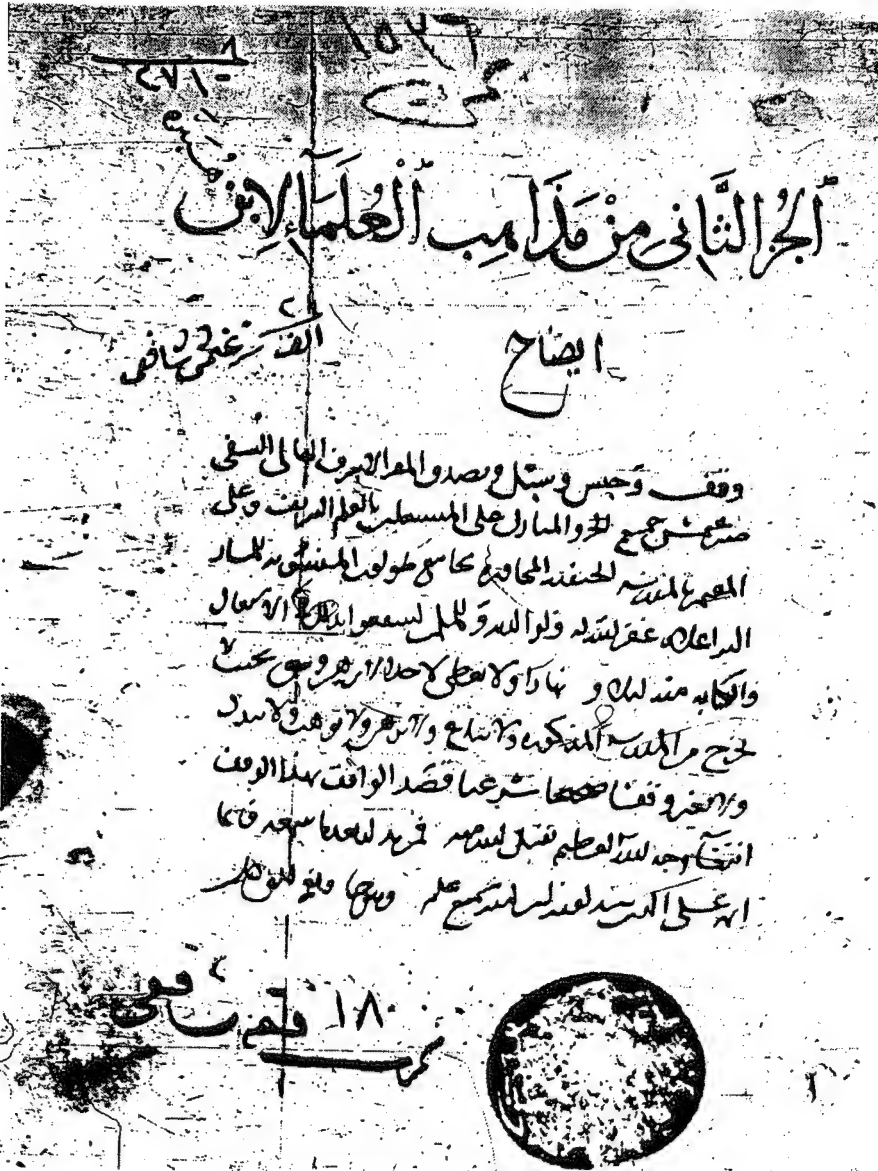 ١٥٣٦
٢٧١٠٨
الجزء الثاني من مذاهب العلماء لابن
هبيرة
ايضاح
الف
شافعي
وقف وحبس وسبل وتصدق المقر الاشرف العالي السيفي
صرغتمش جميع الجزو المبارك على المشتغلين بالعلم الشريف وعلى
المقيمين بالمدرسة الحنفية المجاورة لجامع طولون
غفر الله له ولوالديه وللمسلمين لينتفعوا بذلك في الاشتغال
والكتابة منه ليلا و نهارا ولا يعطى لاحد الا برهن وثيق بحيث لا
يخرج من المدرسة المذكورة ولا يباع ولا يرهن ولا يوهب ولا يبدل
ولا يغير وقفا صحيحا شرعيا قصد الواقف بهذا الوقف
ابتغاء وجه الله العظيم تقبل الله منه فمن بدله بعدما سمعه فانما
اثمه على الذين يبدلونه ان الله سميع عليم
١٨ فقه شافعي